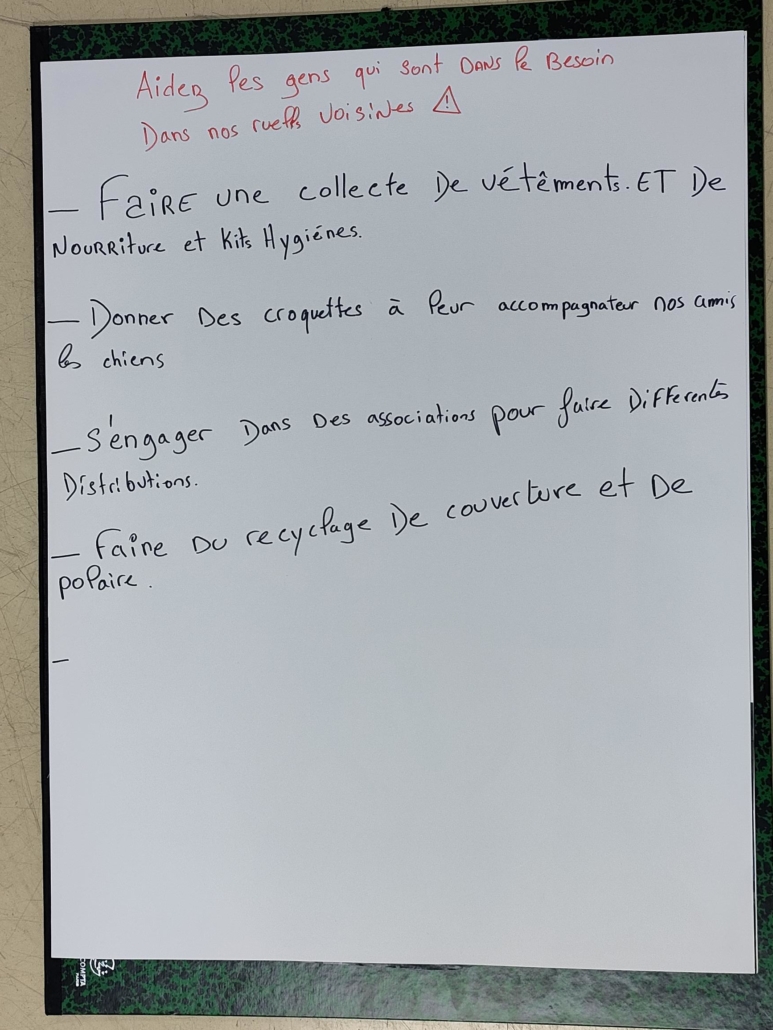 Aidez les gens qui sont DANS le Besoin
Dans nos ruelles voisines ⚠
— FaiRE une collecte De vétêments. ET De
NouRRiture et Kits Hygiénes.
— Donner Des croquettes à leur accompagnateur nos amis
les chiens
— S'engager Dans Des associations pour faire Differentes
Distributions.
— Faire Du recyclage De couverture et De
polaire.
—
COMPTA